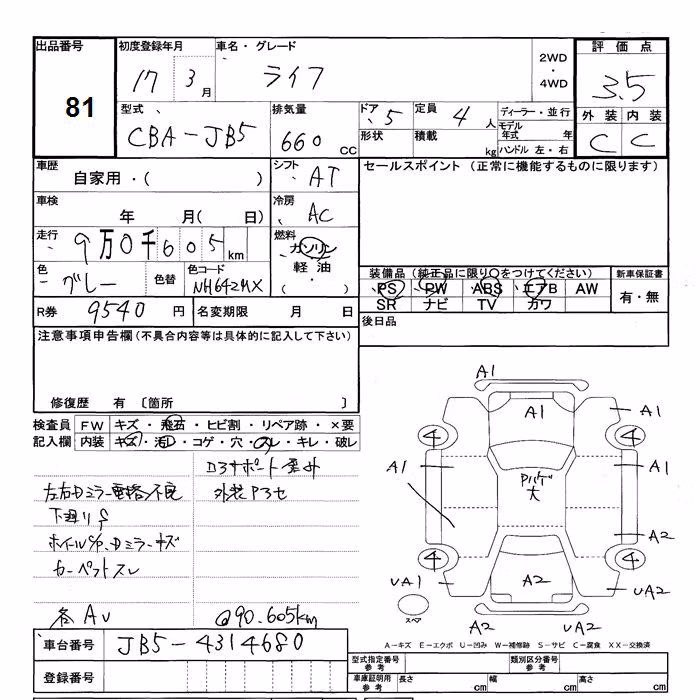 出品番号 初度登録年月 車名・グレード 2WD・4WD 評価点
81 17 3月 ライフ 3.5
型式 排気量 ドア 定員 ディーラー・並行 外装 内装
CBA-JB5 660 CC 5 4人 モデル年式 年 C C
形状 積載 kg ハンドル 左・右
車歴 シフト セールスポイント (正常に機能するものに限ります)
自家用・( ) AT
車検 冷房
年 月( 日) AC
走行 燃料
9万0千605km ガソリン
軽油
・
( )
色 色替 色コード 装備品 (純正品に限り○をつけてください) 新車保証書
グレー NH642MX PS PW ABS エアB AW 有・無
SR ナビ TV カワ
R券 9540円 名変期限 月 日 後日品
注意事項申告欄(不具合内容等は具体的に記入して下さい)
修復歴 有 〔箇所 〕
検査員 FW キズ・飛石・ヒビ割・リペア跡・×要
記入欄 内装 キズ・汚レ・コゲ・穴・スレ・キレ・破レ
左右Dミラー電格不良
下廻りS
カーペットスレ
各AU
外装P3セ
@90.605km
A1
A1 A1
4 4
A1 A1
大
A2
4 4
UA1 A2 UA2
スペア
A2 UA2
A-キズ E-エクボ U-凹み W-補修跡 S-サビ C-腐食 XX-交換済
車台番号 JB5-4314680
登録番号
型式指定番号 参考 類別区分番号 参考
車庫証明用 参考 長さ cm 幅 cm 高さ cm